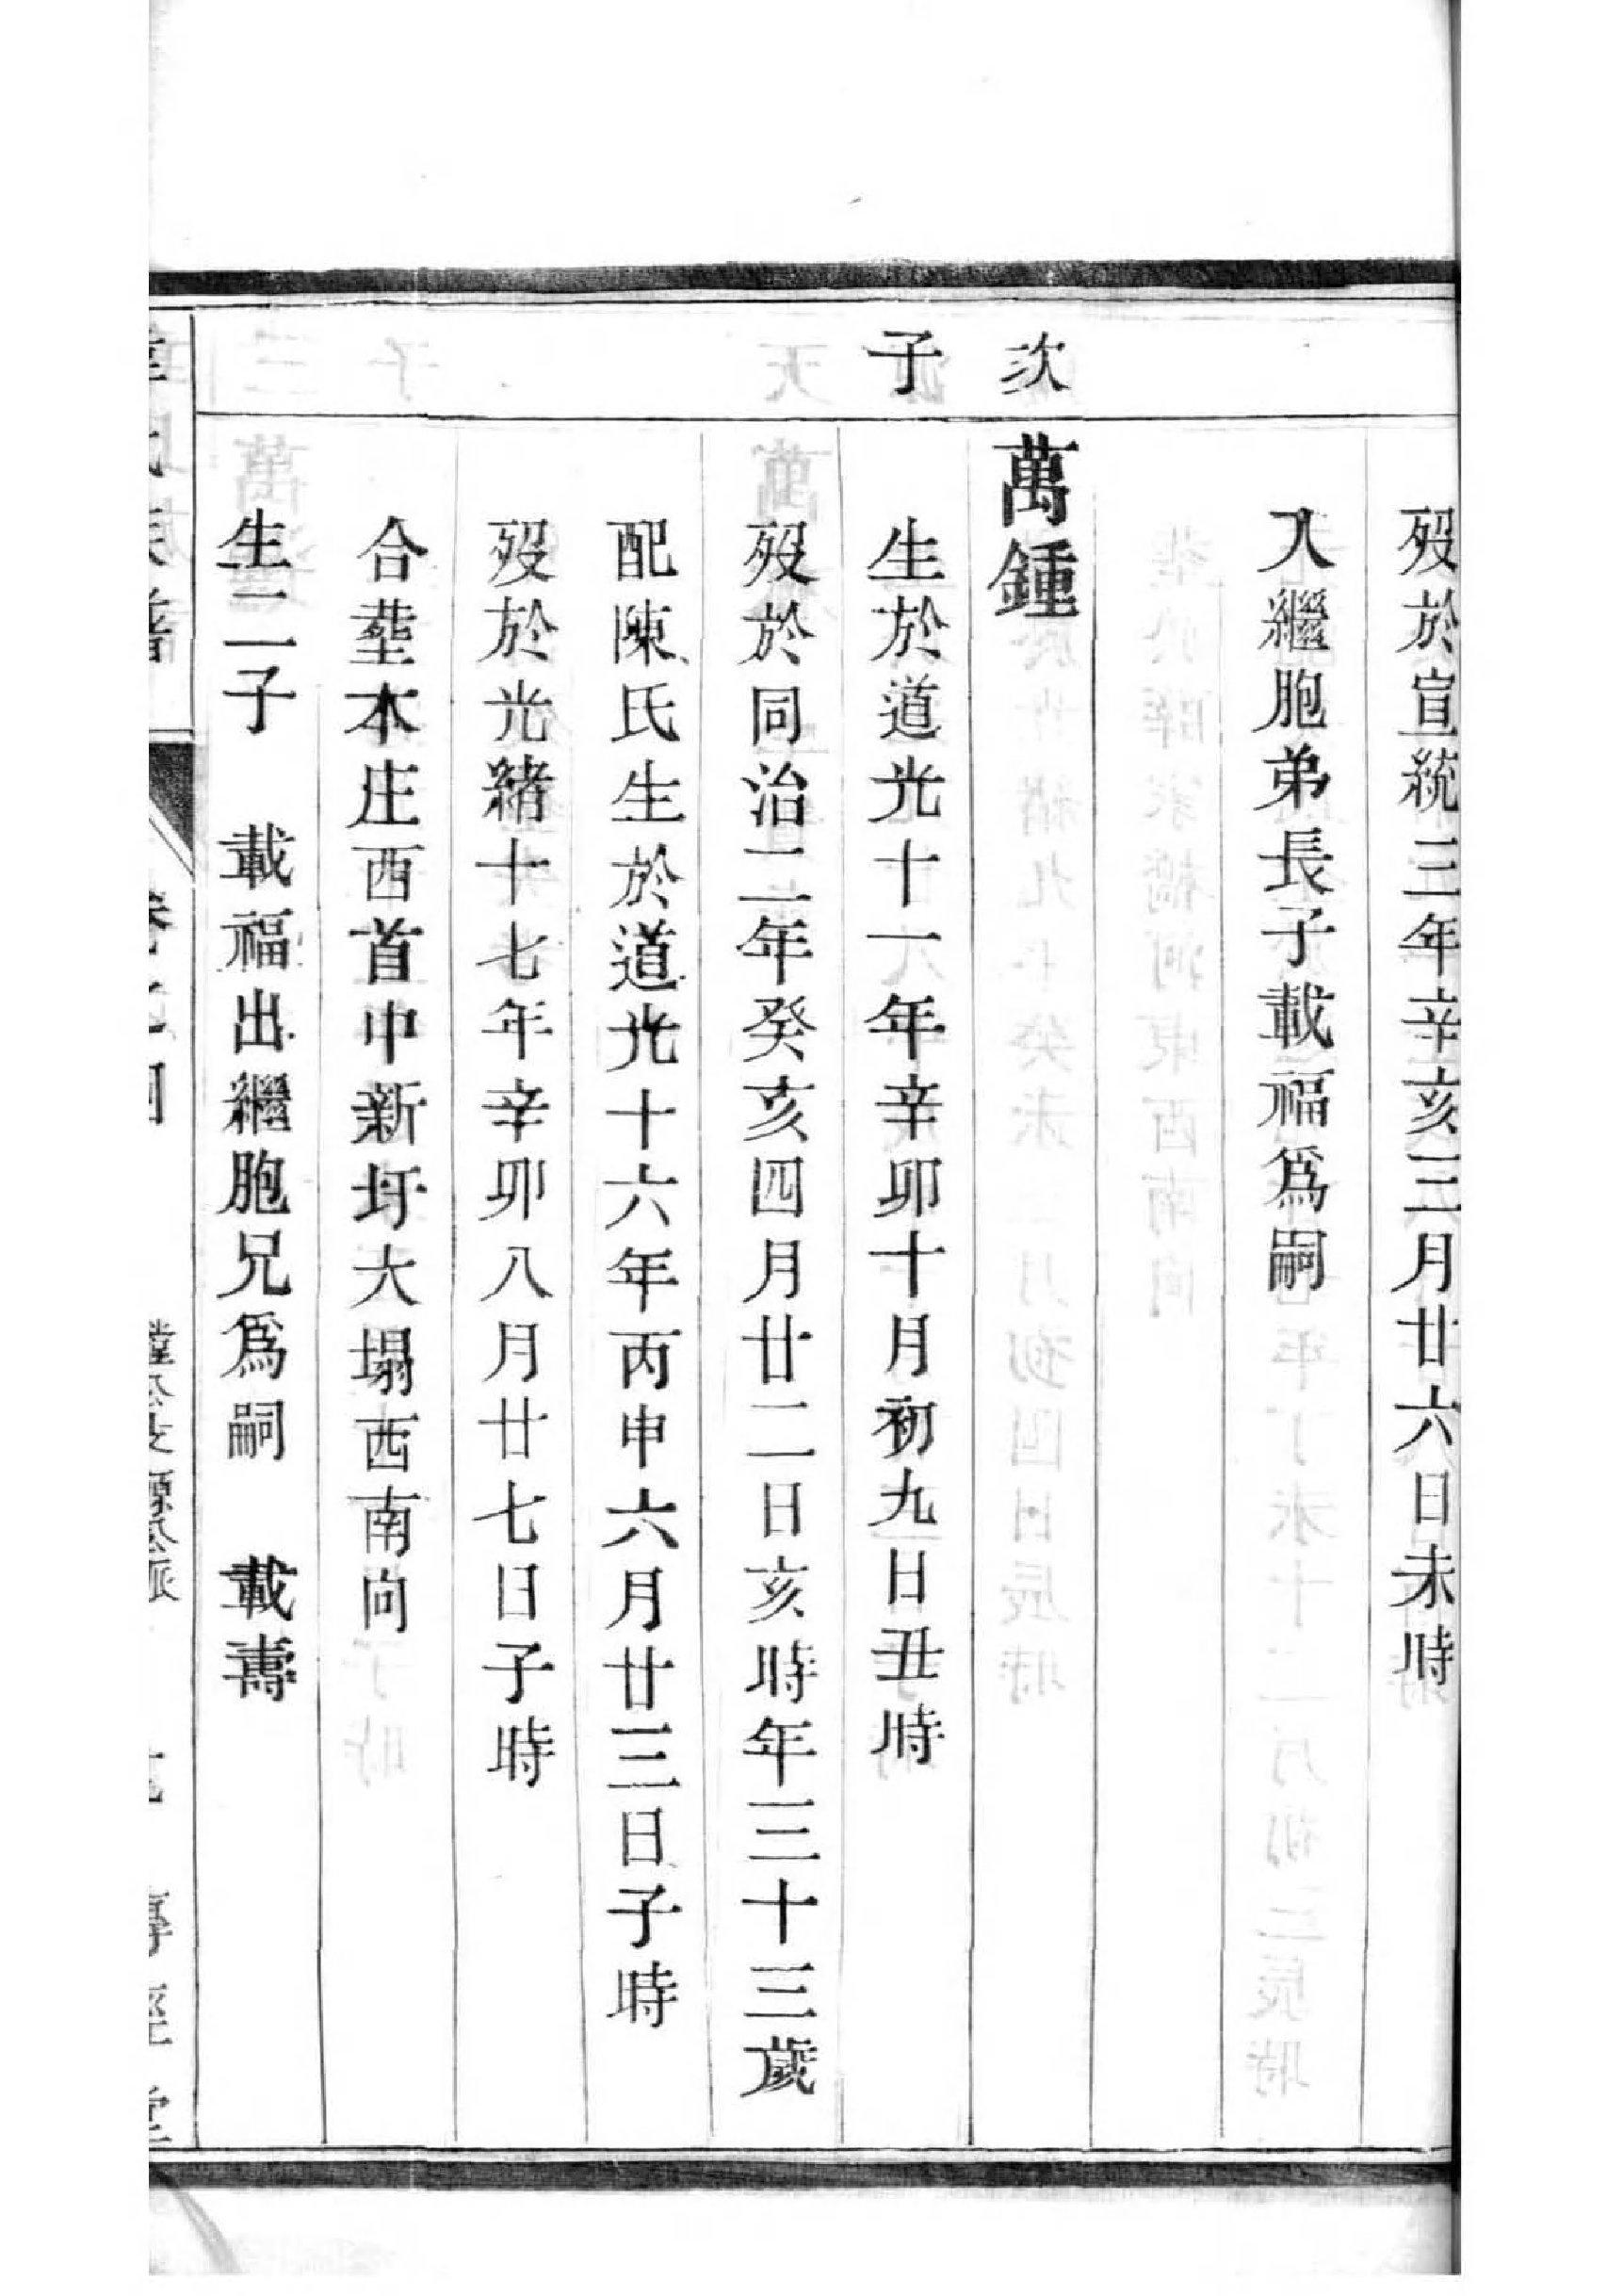 歿於宣統三年辛亥三月廿六日未時
入繼胞弟長子載福爲嗣
次
子
萬鍾
生於道光十一年辛卯十月初九日丑時
歿於同治二年癸亥四月廿二日亥時年三十三歲
配陳氏生於道光十六年丙申六月廿三日子時
歿於光緒十七年辛卯八月廿七日子時
合塟本庄西首中新圩大塌西南向
生二子　載福出繼胞兄爲嗣　載壽